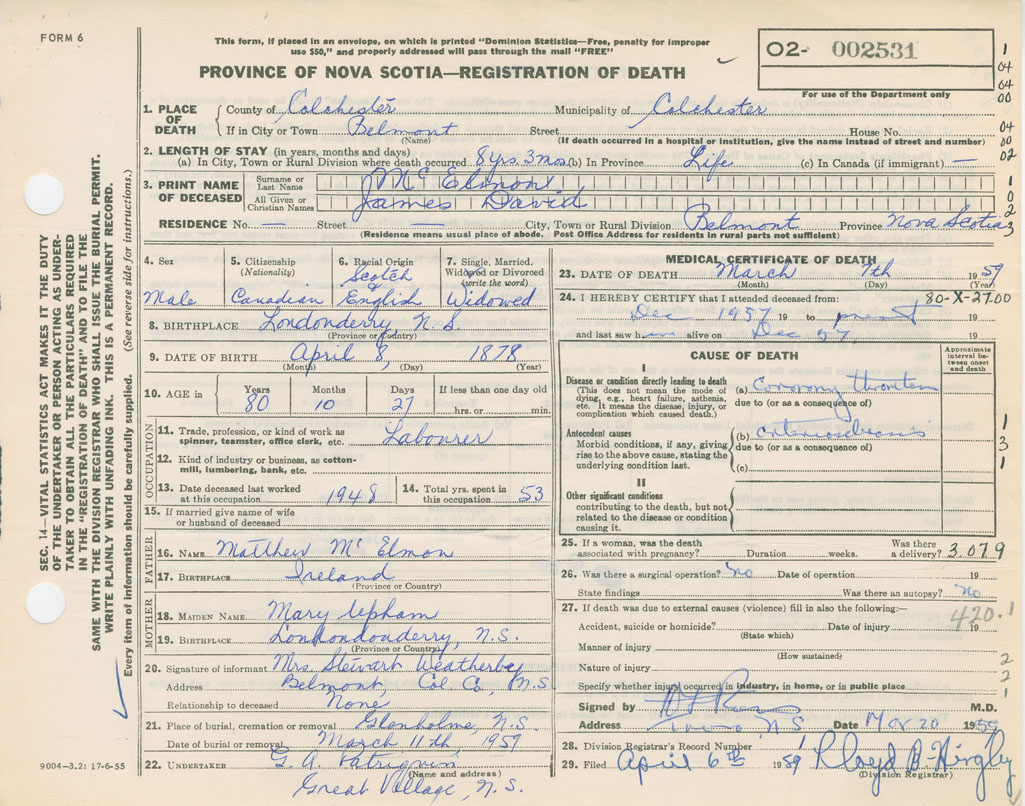 FORM 6
This form, if placed in an envelope, on which is printed "Dominion Statistics—Free, penalty for improper
use $50," and properly addressed will pass through the mail "FREE"
PROVINCE OF NOVA SCOTIA—REGISTRATION OF DEATH
02- 002531
For use of the Department only
1
04
04
00
04
00
02
1
0
2
3
SEC. 14—VITAL STATISTICS ACT MAKES IT THE DUTY
OF THE UNDERTAKER OR PERSON ACTING AS UNDER-
TAKER TO OBTAIN ALL THE PARTICULARS REQUIRED
IN THE "REGISTRATION OF DEATH" AND TO FILE THE
SAME WITH THE DIVISION REGISTRAR WHO SHALL ISSUE THE BURIAL PERMIT.
WRITE PLAINLY WITH UNFADING INK. THIS IS A PERMANENT RECORD.
Every item of information should be carefully supplied. (See reverse side for instructions.)
1. PLACE OF DEATH County of Colchester Municipality of Colchester
If in City or Town Belmont Street House No.
(Name) (If death occurred in a hospital or institution, give the name instead of street and number)
2. LENGTH OF STAY (in years, months and days)
(a) In City, Town or Rural Division where death occurred 8 yrs. 3 mos. (b) In Province Life (c) In Canada (if immigrant) —
3. PRINT NAME OF DECEASED
Surname or Last Name Mc Elmon
All Given or Christian Names James David
RESIDENCE No. — Street — City, Town or Rural Division Belmont Province Nova Scotia
(Residence means usual place of abode. Post Office Address for residents in rural parts not sufficient)
4. Sex
Male
5. Citizenship (Nationality)
Canadian
6. Racial Origin
Scotch
English
7. Single, Married, Widowed or Divorced (write the word)
Widowed
8. BIRTHPLACE Londonderry, N. S.
(Province or Country)
9. DATE OF BIRTH April 8, 1878
(Month) (Day) (Year)
10. AGE in Years 80 Months 10 Days 27 If less than one day old
hrs. or min.
OCCUPATION
11. Trade, profession or kind of work as
spinner, teamster, office clerk, etc. Labourer
12. Kind of industry or business, as cotton-
mill, lumbering, bank, etc.
13. Date deceased last worked
at this occupation 1948
14. Total yrs. spent in
this occupation 53
15. If married give name of wife
or husband of deceased
FATHER
16. NAME Matthew Mc Elmon
17. BIRTHPLACE Ireland
(Province or Country)
MOTHER
18. MAIDEN NAME Mary Upham
19. BIRTHPLACE Londondonderry, N.S.
(Province or Country)
20. Signature of informant Mrs. Stewart Weatherby
Address Belmont, Col. Co., N.S
Relationship to deceased None
21. Place of burial, cremation or removal Glenholme, N.S.
Date of burial or removal March 11th, 1959
22. UNDERTAKER G. A.
(Name and address)
Great Village, N.S.
9004—3.2: 17-6-55
MEDICAL CERTIFICATE OF DEATH
23. DATE OF DEATH March 7th 1959
(Month) (Day) (Year)
24. I HEREBY CERTIFY that I attended deceased from: 80-X-27.00
Dec 1957 19 to present 19
and last saw h im alive on Dec 57 19
CAUSE OF DEATH
Approximate interval between onset and death
I
Disease or condition directly leading to death
(This does not mean the mode of
dying, e.g., heart failure, asthenia,
etc. It means the disease, injury, or
complication which caused death.)
(a) Coronary
due to (or as a consequence of)
Antecedent causes
Morbid conditions, if any, giving
rise to the above cause, stating the
underlying condition last.
(b) arteriosclerosis
due to (or as a consequence of)
(c)
1
3
1
II
Other significant conditions
contributing to the death, but not
related to the disease or condition
causing it.
25. If a woman, was the death
associated with pregnancy? Duration weeks. Was there a delivery? 3.079
26. Was there a surgical operation? No Date of operation 19
State findings Was there an autopsy? No
27. If death was due to external causes (violence) fill in also the following:— 420.1
Accident, suicide or homicide? Date of injury 19
(State which)
Manner of injury
(How sustained)
Nature of injury
Specify whether injury occurred in industry, in home, or in public place
2
2
1
Signed by M.D.
Address Truro, N.S. Date Mar. 20 1959
28. Division Registrar's Record Number
29. Filed April 6th 1959 Lloyd B
(Division Registrar)